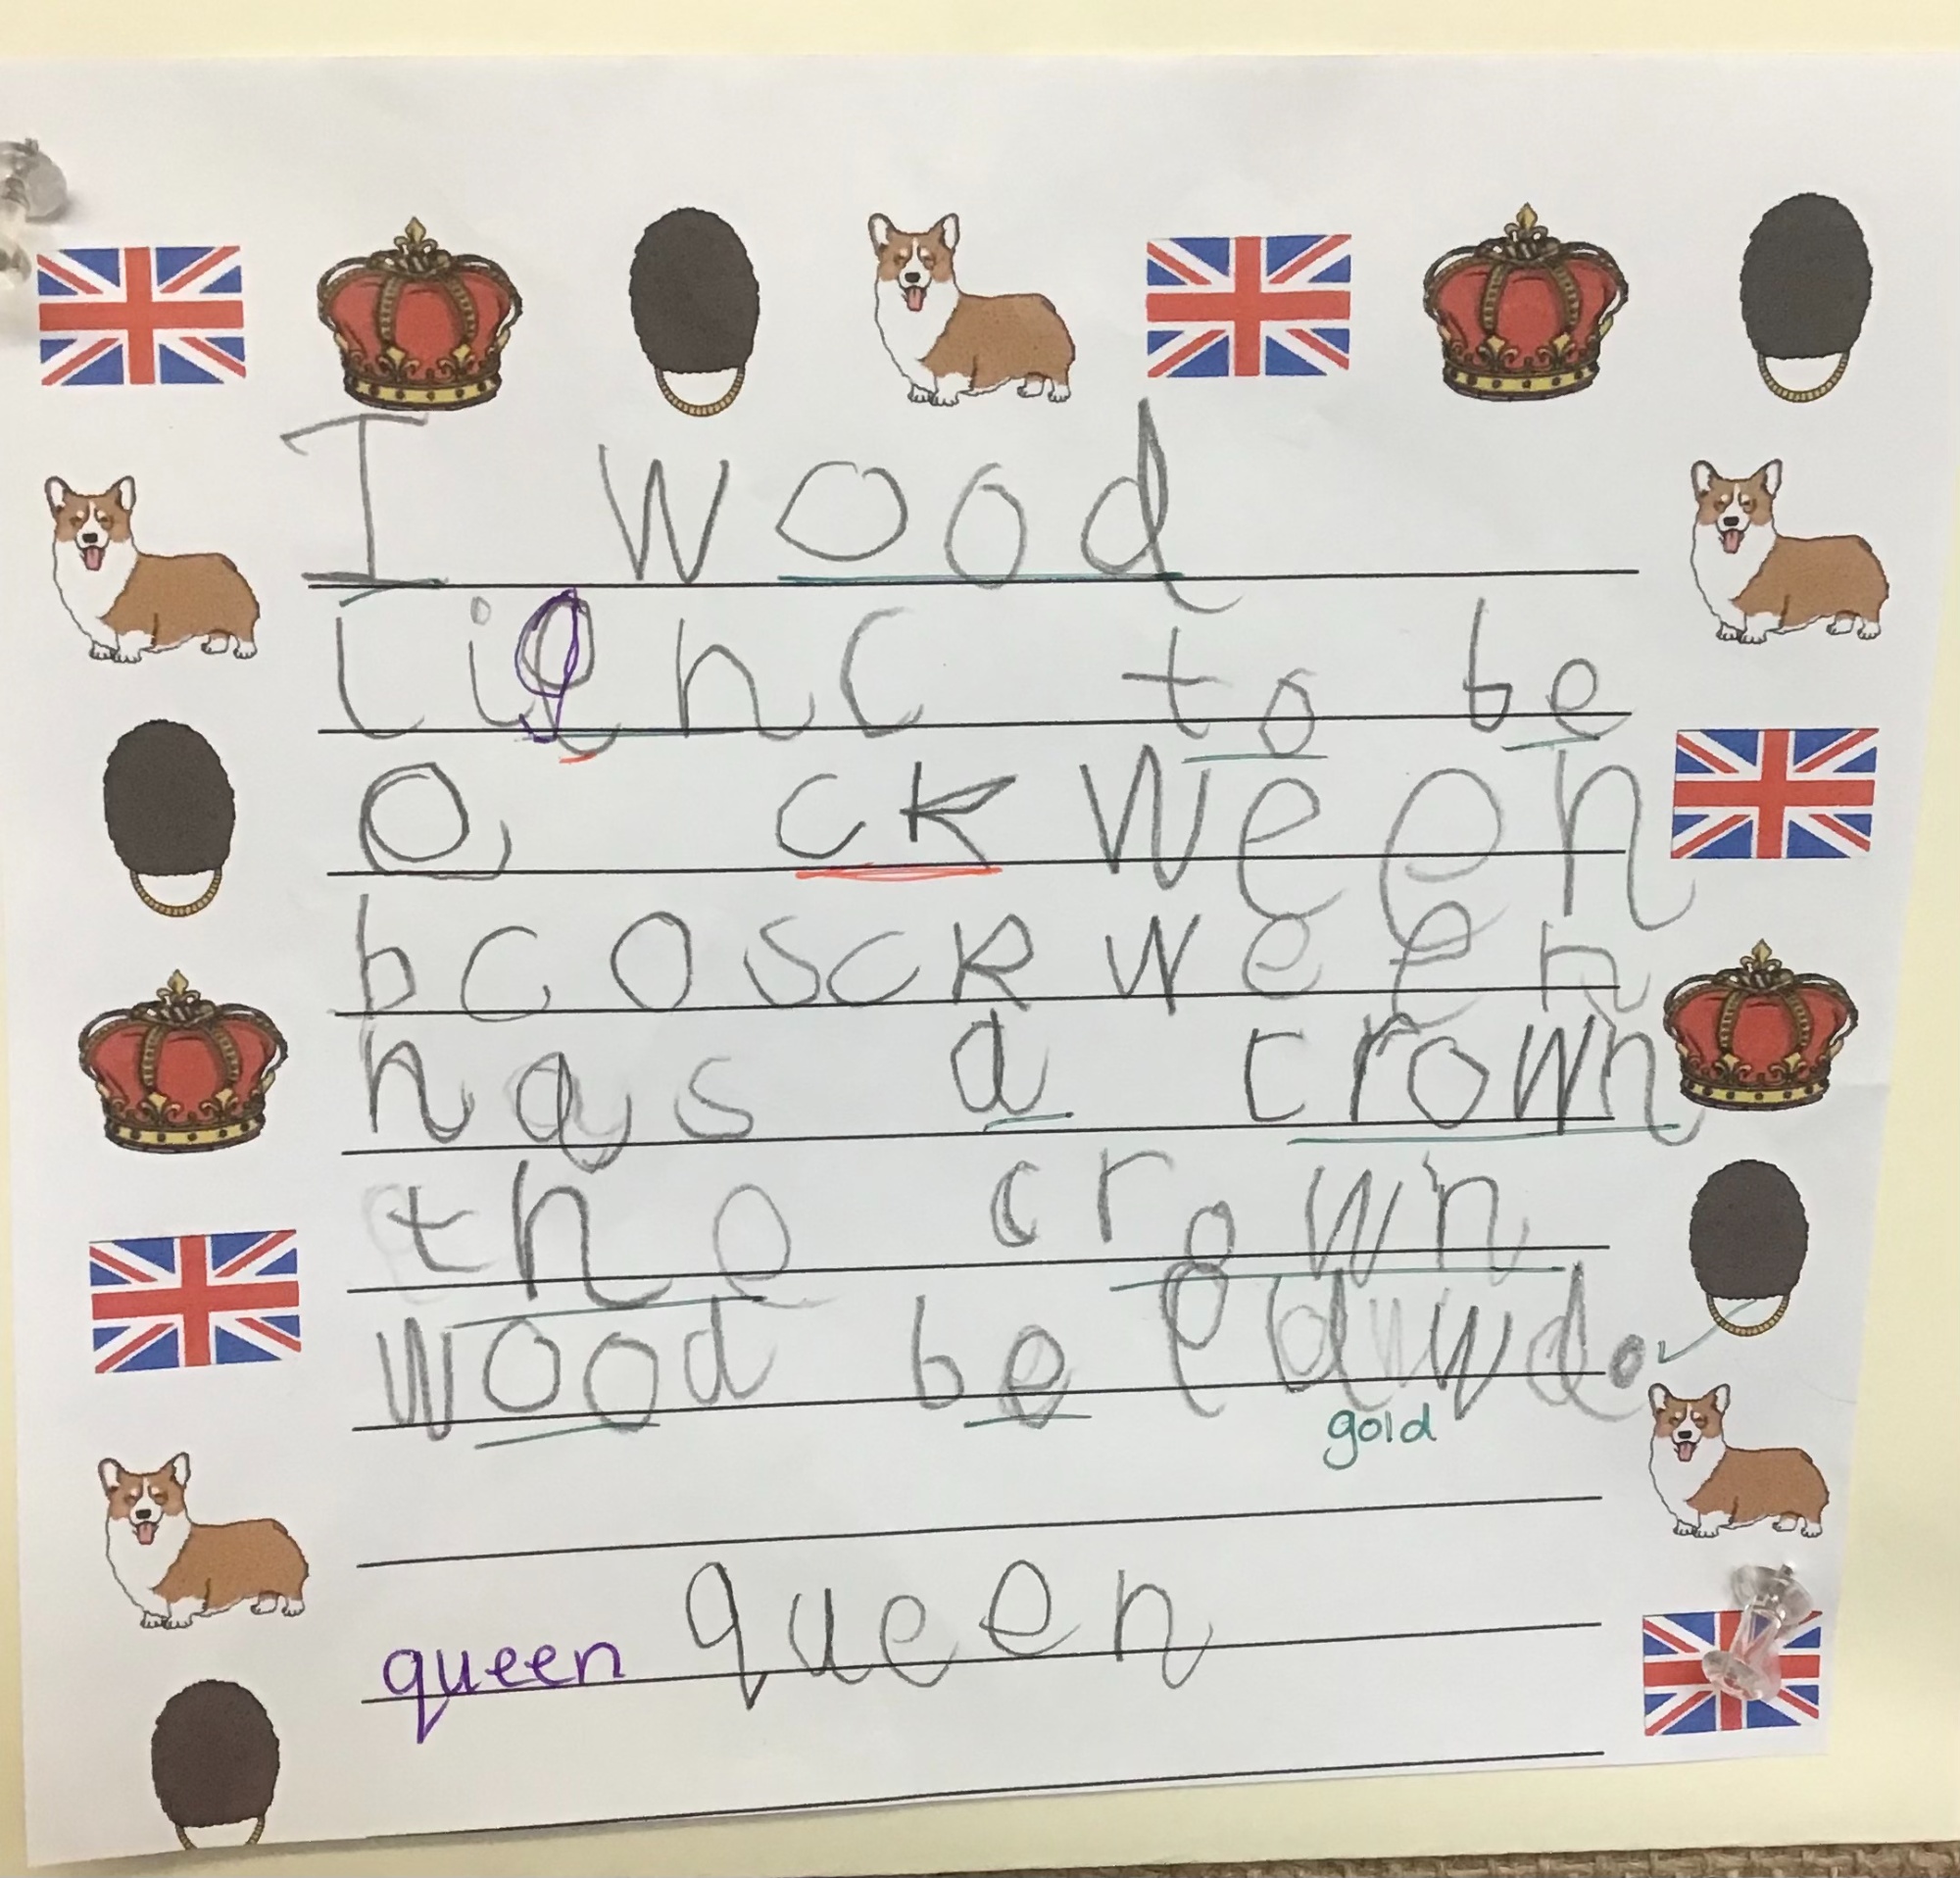 I wood
lighc to be
a ckween
bcosckween
has a crown
the crown
wood be
gold
queen queen